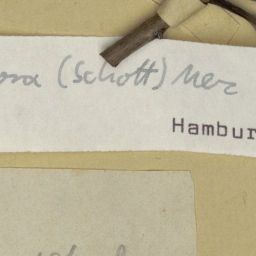 ora (Schott) Mez
Hambur